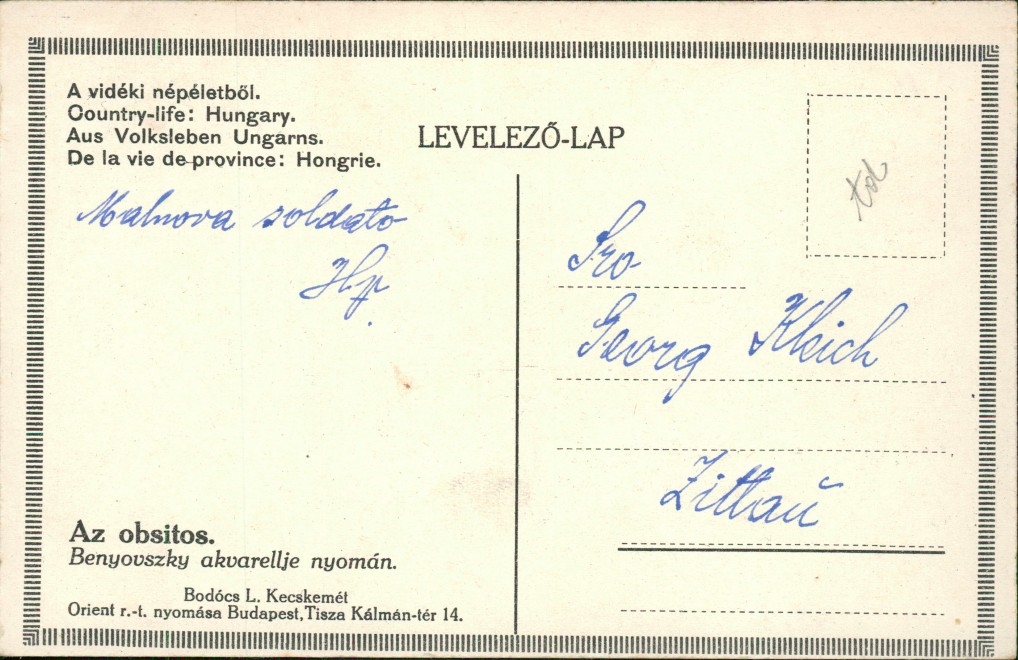 A vidéki népéletből.
Country-life: Hungary.
Aus Volksleben Ungarns.
De la vie de province: Hongrie.
LEVELEZŐ-LAP
Malnova soldato
Sro
Georg Kleich
Zittaŭ
Az obsitos.
Benyovszky akvarellje nyomán.
Bodócs L. Kecskemét
Orient r.-t. nyomása Budapest, Tisza Kálmán-tér 14.